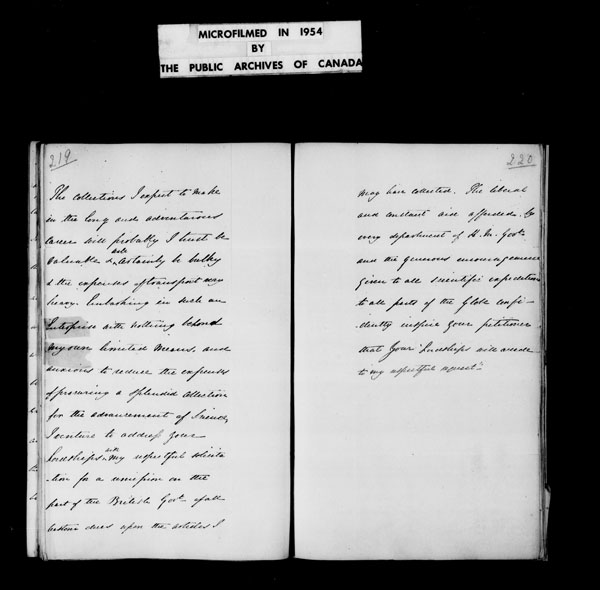 MICROFILMED IN 1954
BY
THE PUBLIC ARCHIVES OF CANADA
219
The collections I expect to make
in the long and adventurous
career will probably I trust be
valuable & will certainly be bulky
& the expenses of transport very
heavy. Embarking in such an
Enterprise with nothing beyond
my own limited means, and
anxious to reduce the expenses
of procuring a splendid collection
for the advancement of Science,
I venture to address your
Lordships with my respectful solicita
tion for a remission on the
part of the British Govt. of all
custom dues upon the articles I
220
may have collected. The liberal
and constant aid afforded by
every department of H. M. Govt.
and the generous encouragement
given to all scientific expeditions
to all parts of the Globe confi-
dently inspire your petitioner
that your Lordships will accede
to my respectful request.